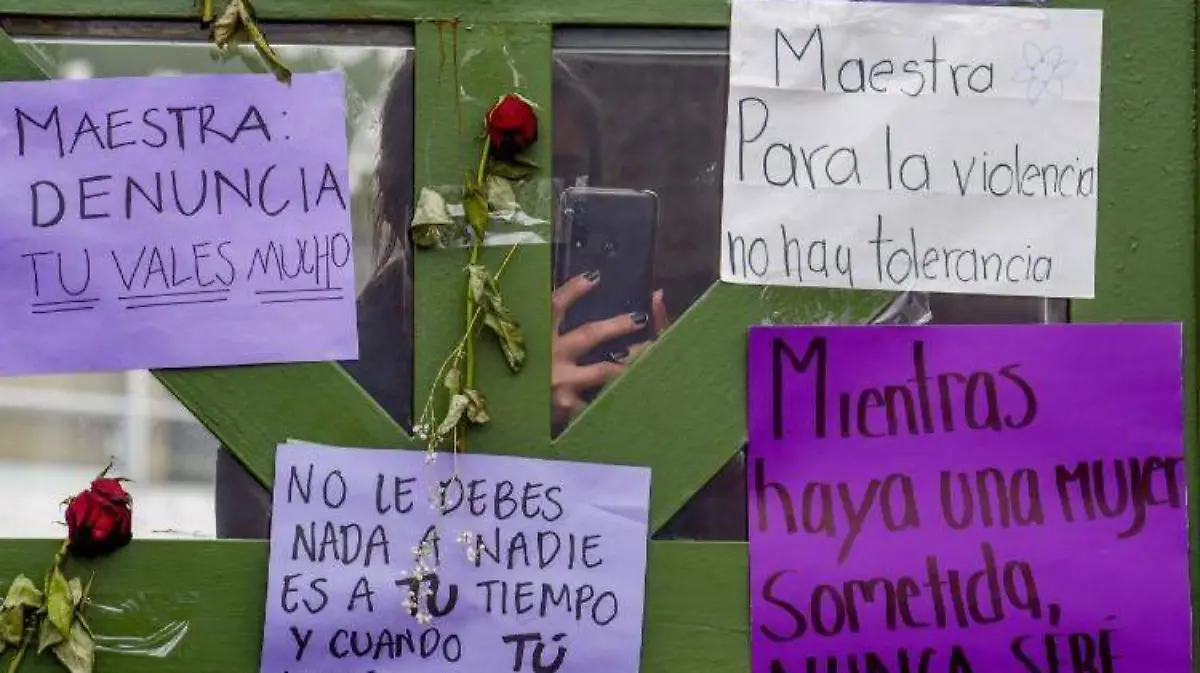 MAESTRA:
DENUNCIA
TU VALES MUCHO
Maestra
Para la violencia
no hay tolerancia
NO LE DEBES
NADA A NADIE
ES A TU TIEMPO
Y CUANDO TÚ
Mientras
haya una mujer
Sometida,
NUNCA SERÉ